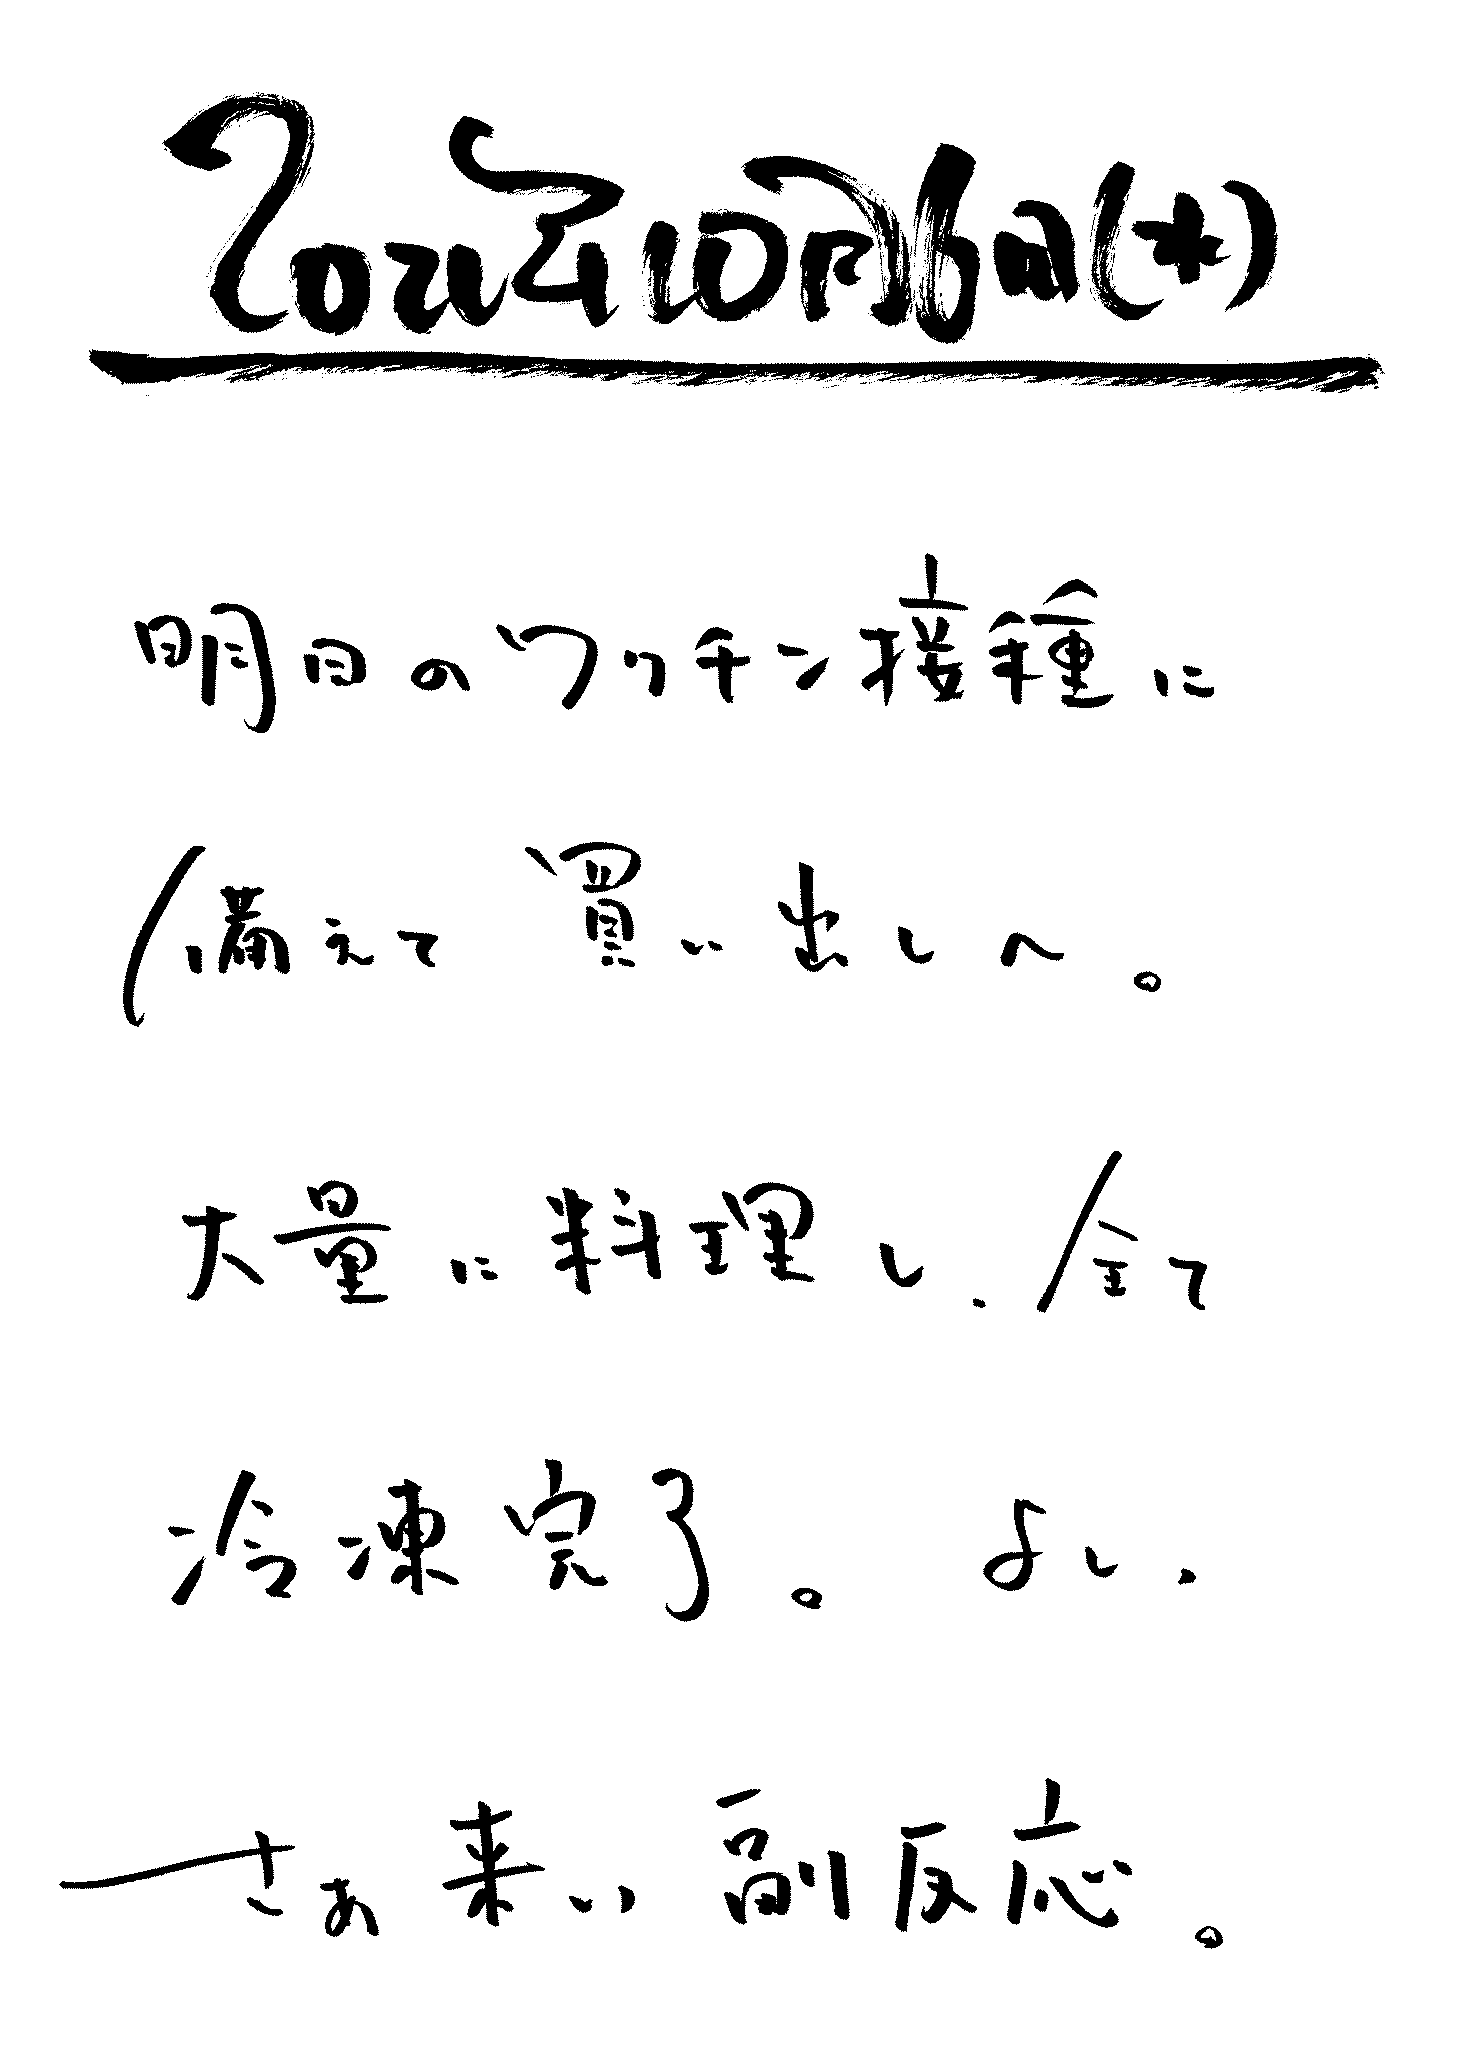 2021年10月6日(水)
明日のワクチン接種に
備えて買い出しへ。
大量に料理し、全て
冷凍完了。よし、
さぁ来い副反応。